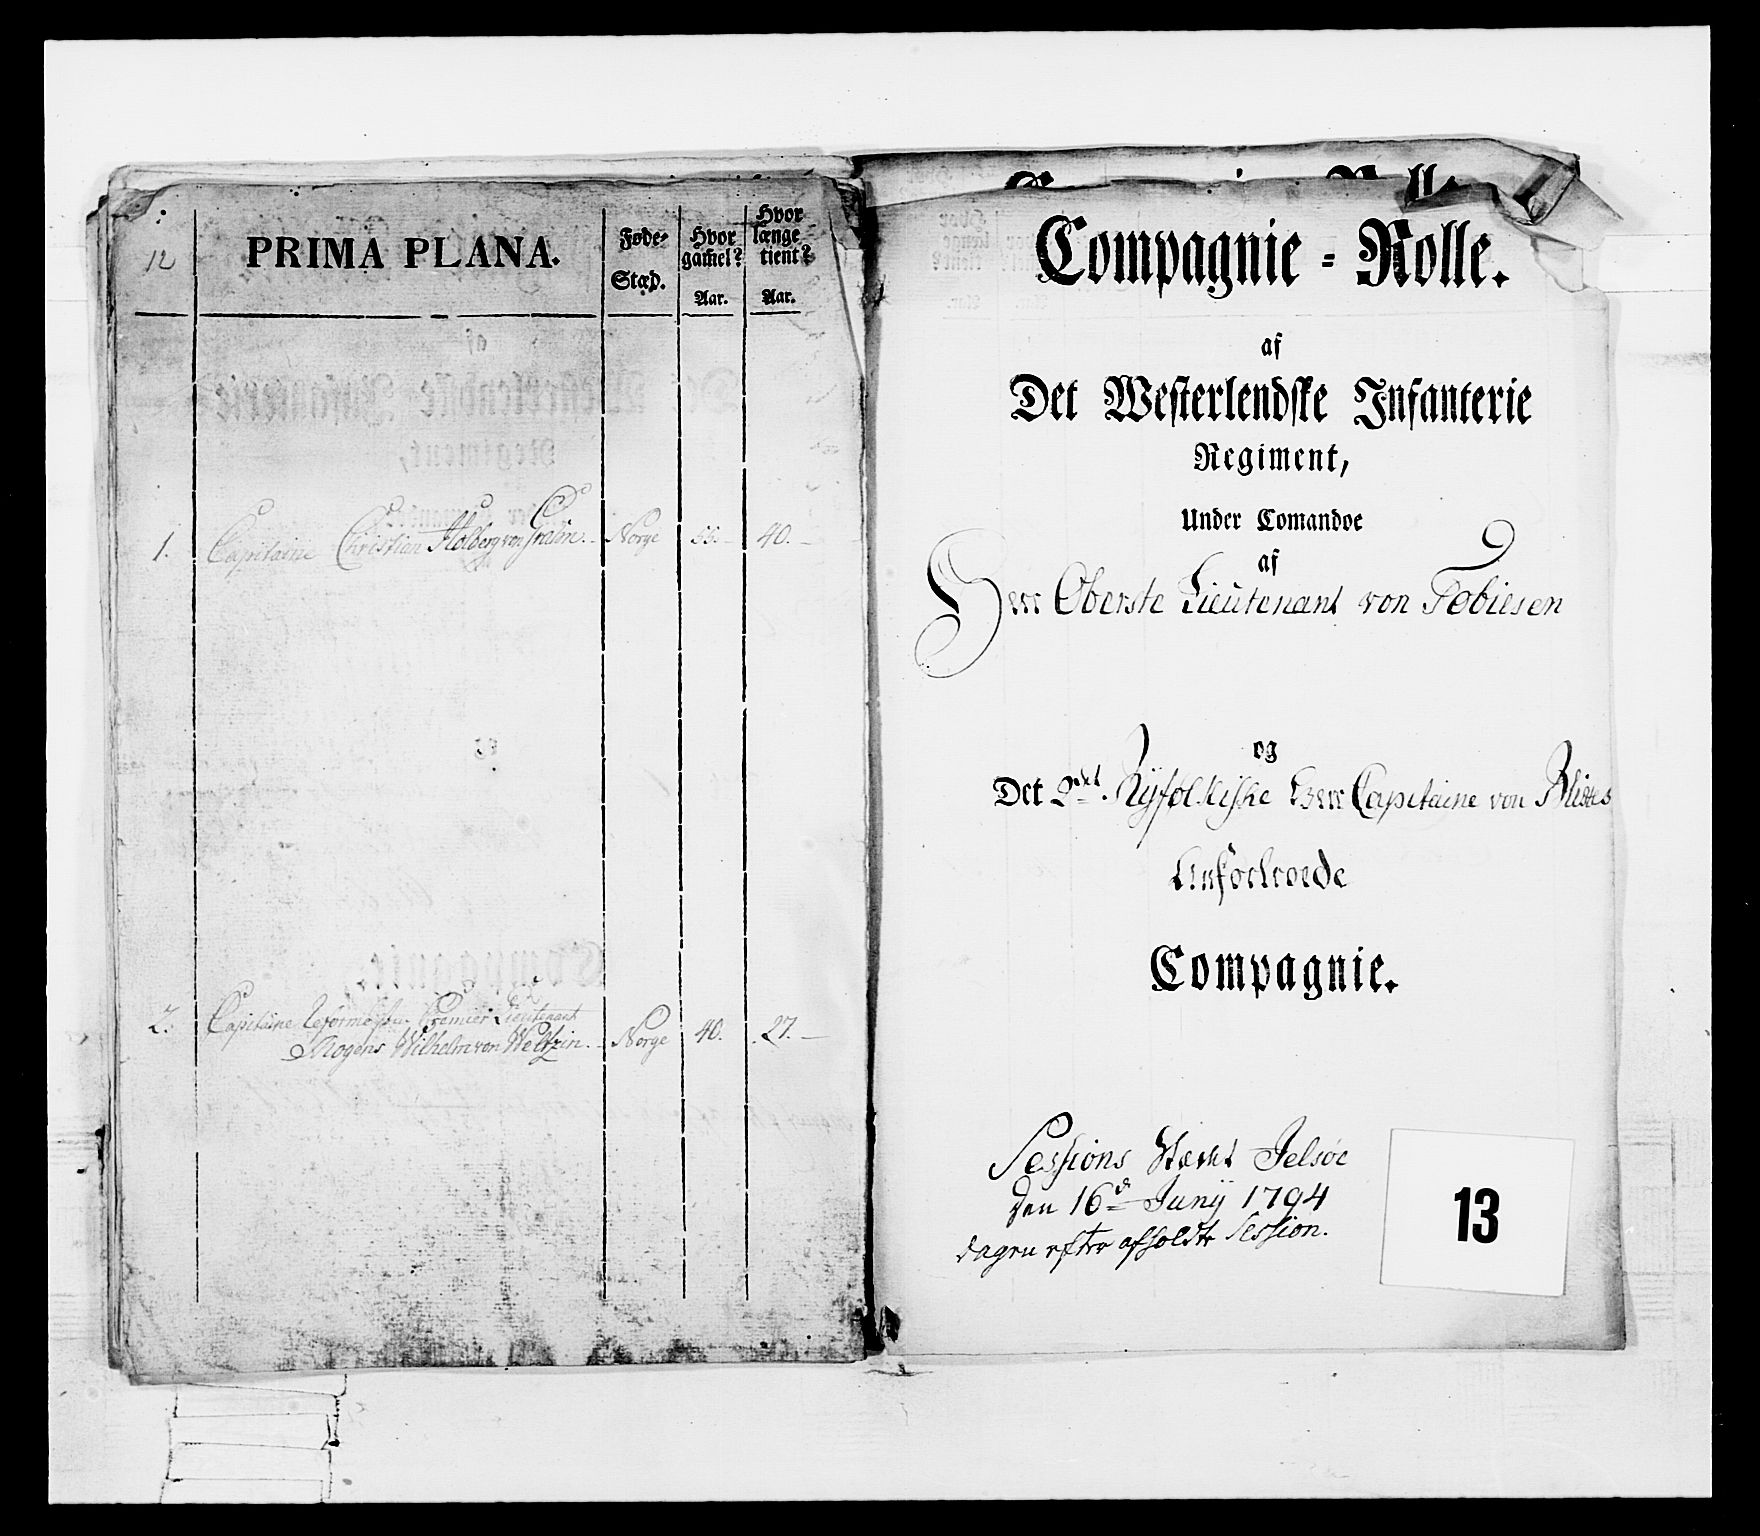 12
PRIMA PLANA.
Føde-
Stæd.
Hvor
gamel?
Aar.
Hvor
længe
tient?
Aar.
1. Capitaine Christian Holberg von Gralün. Norge 55. 40.
2. Capitaine Reformé Premier Lieutenant
Mogens Wilhelm von Weltzin. Norge 40. 27.
Compagnie-Rolle.
af
Det Westerlendske Infanterie
Regiment,
Under Comandoe
af
Herr Oberste Lieutenant von Tobiesen
og
Det 2det Ryfølkiske Herr Capitaine von
Anfortroede
Compagnie.
Sessions Stædet Jelsøe
den 16d Junij 1794
dagen efter afholdte Session.
13